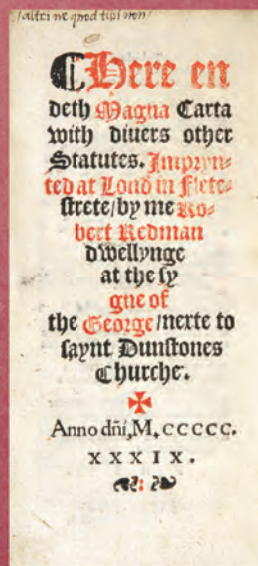 /altri ne quod tibi non/
¶Here en
deth Magna Carta
with diuers other
Statutes. Impryn⸗
ted at Lōd in Flete⸗
strete/by me Ro⸗
bert Redman
dwellynge
at the sy
gne of
the George/nexte to
saynt Dunstones
Churche.
✠
Anno dn̄i, M. ccccc.
xxxix.